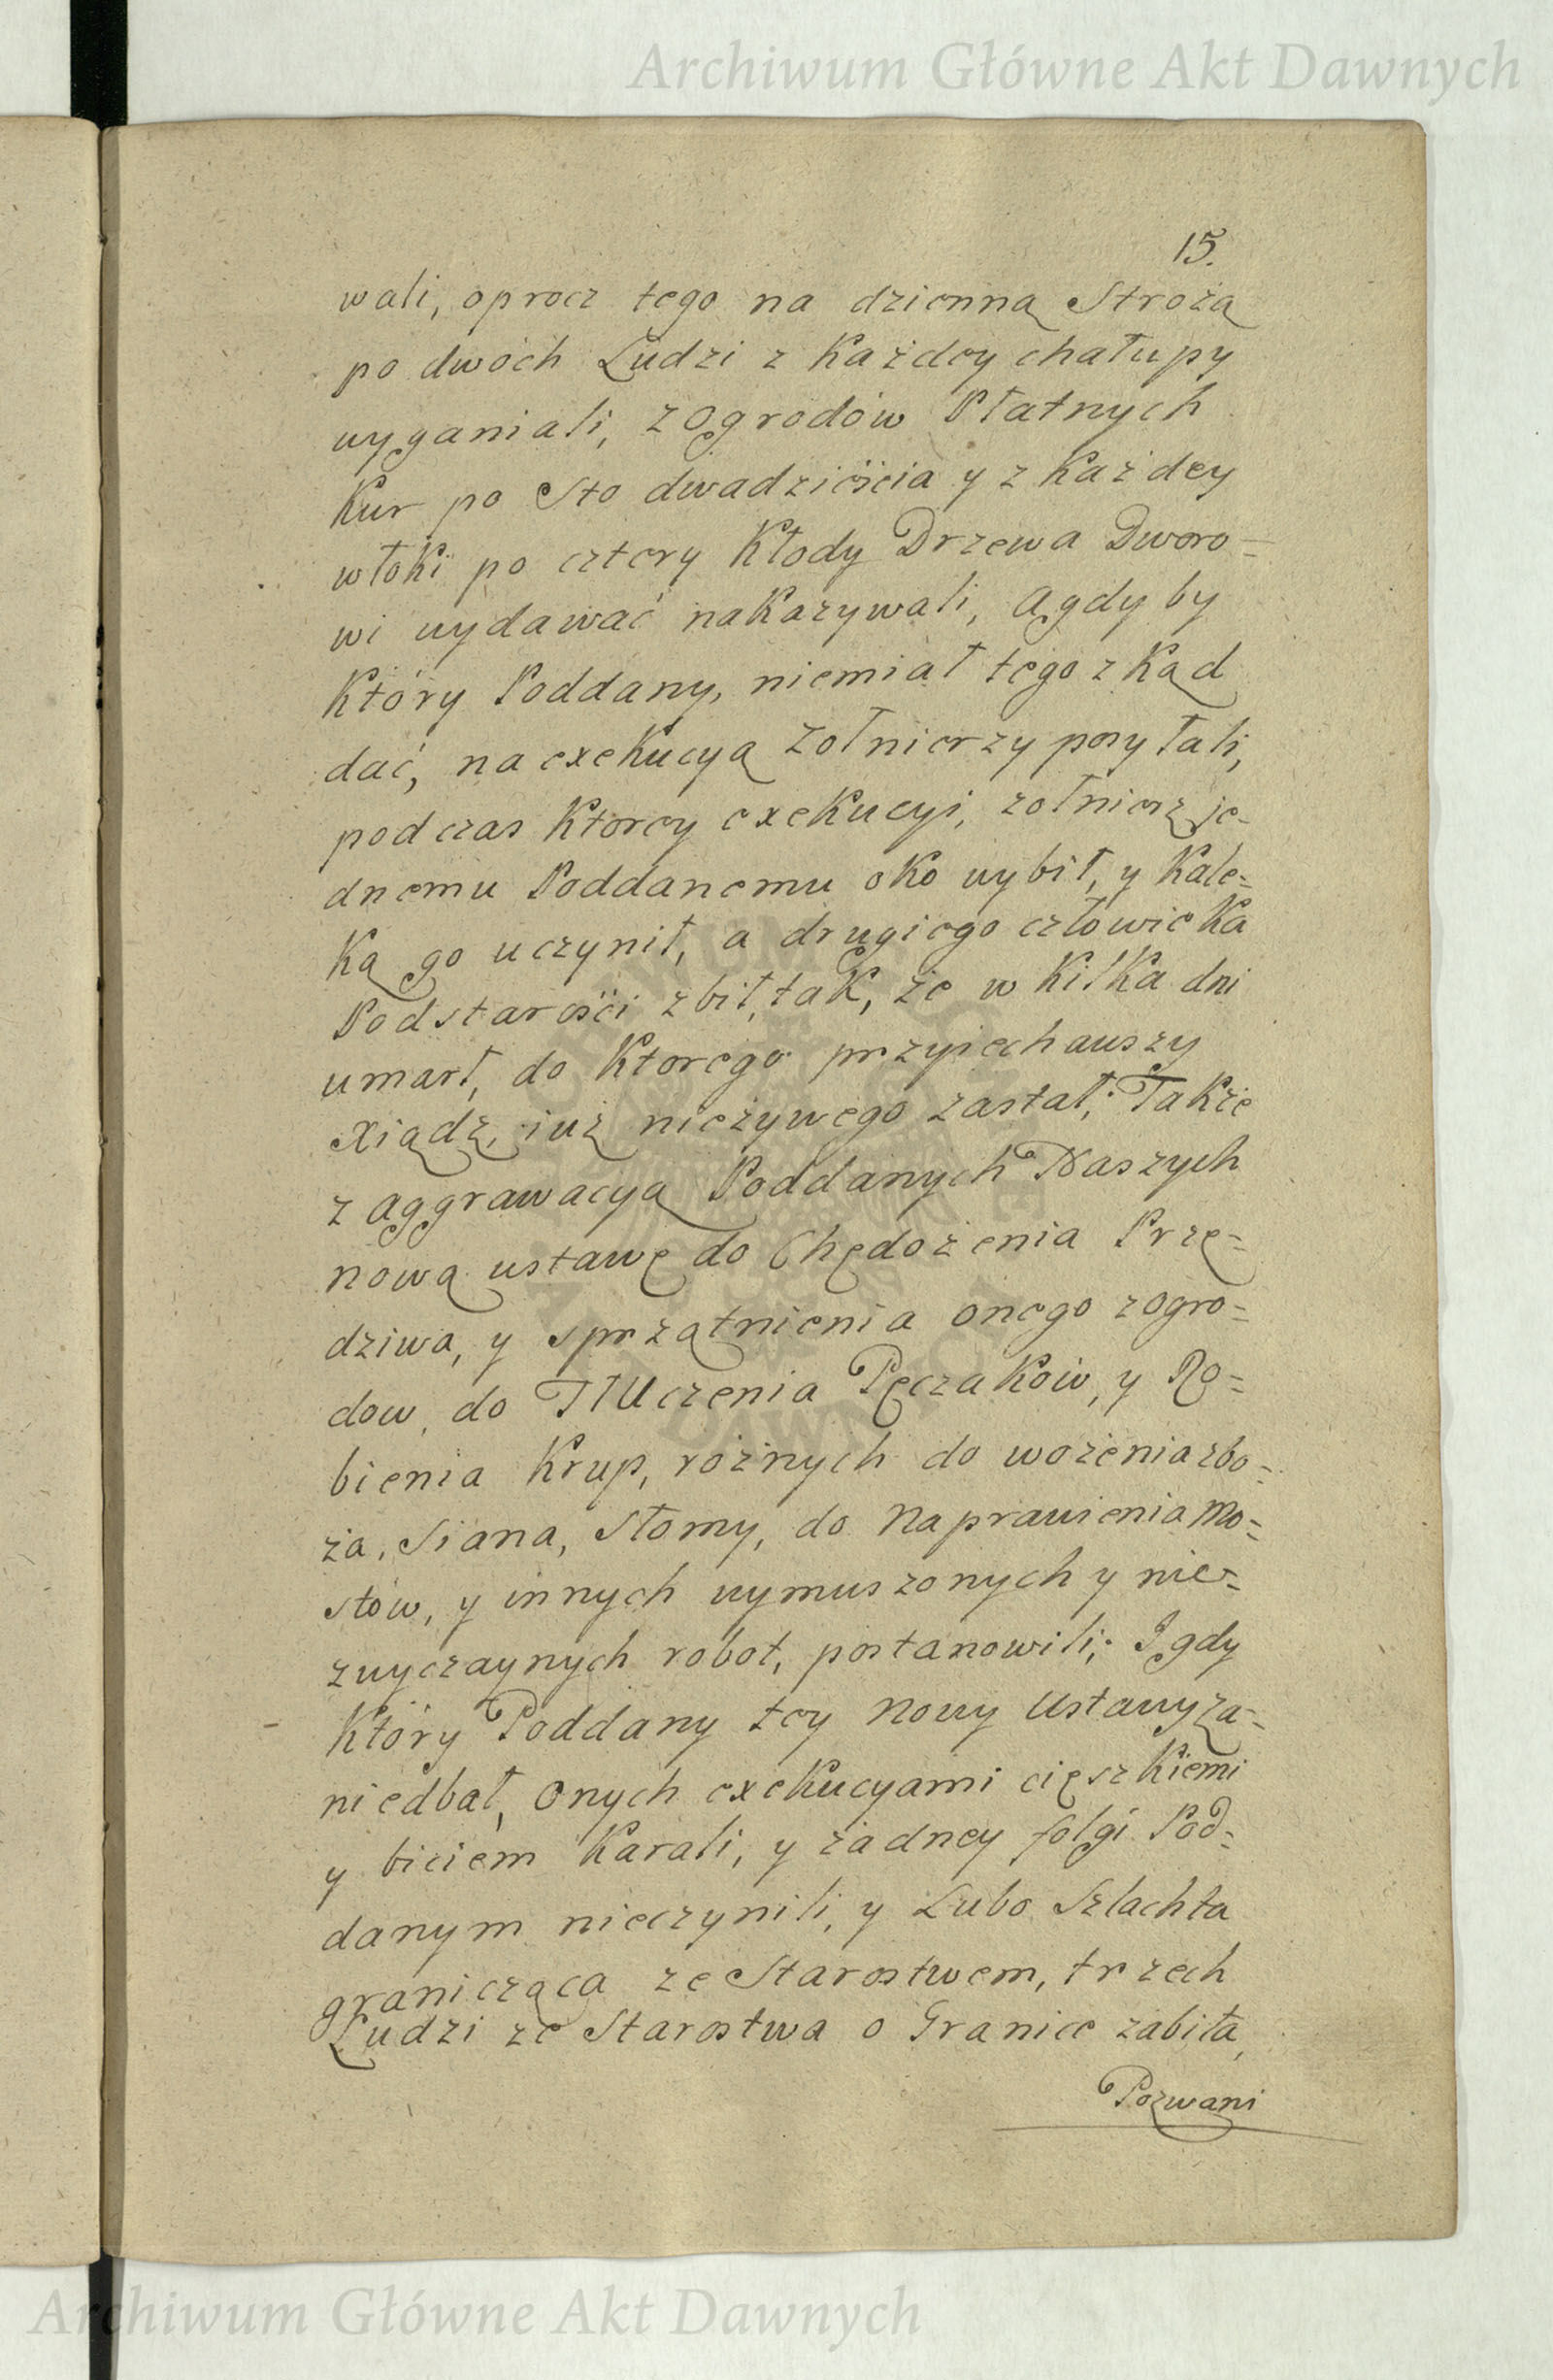 Archiwum Główne Akt Dawnych
15.
wali, oprocz tego na dzienną Strożą
po dwóch Ludzi z Każdey chałupy
wyganiali, z Ogrodów Płatnych
Kur po Sto dwadzieścia y z Każdey
włoki po cztery Kłody Drzewa Dworo=
wi wydawać nakazywali, a gdyby
Który Poddany, niemiał tego zkąd
dać, na exekucyą Zołnierzy posyłali,
podczas Ktorey exekucyi, zołnierz je-
dnemu Poddanemu oko wybił, y Kale=
Ką go uczynił, a drugiego człowieka
Podstarości zbił, tak, że w Kilka dni
umarł, do Ktorego przyiechawszy
Xiądz, iuż nieżywego zastał; Także
z aggrawacyą Poddanych Naszych
nową ustawę do Chędożenia Przę=
dziwa, y sprzątnienia onego z ogro=
dow, do Tłuczenia Pęczaków, y Ro=
bienia Krup, różnych do wożenia zbo=
ża, Siana, Słomy, do Naprawienia Mo=
stów, y innych wymuszonych y nie=
zwyczaynych robot, postanowili; I gdy
Który Poddany tey Nowy Ustawy za=
niedbał, Onych exekucyami cięszkiemi
y biciem Karali, y żadney folgi Pod=
danym nieczynili, y Lubo Szlachta
granicząca ze Starostwem, trzech
Ludzi ze Starostwa o Granice zabiła,
Pozwani
Archiwum Główne Akt Dawnych